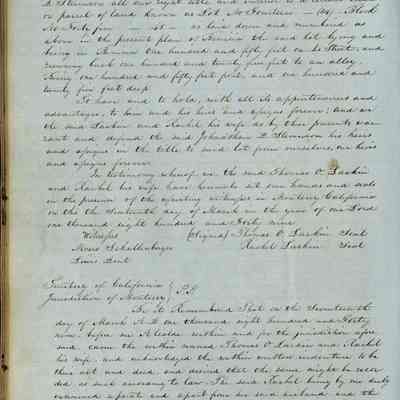 D. Stevenson all our right title and interest in a certain
or parcel of land known as Lot No Fourteen — (14) Block
No Forty five — 45 — as laid down and numbered as
above in the present plan of Benicia the said lot lying and
being in Benicia One hundred and fifty feet on the Street, and
running back one hundred and twenty five feet to an alley.
Being one hundred and fifty feet front, and one hundred and
twenty five feet deep.
To have and to hold, with all its appurtenances and
advantages, to him and his heirs and assigns forever; And we
the said Larkin and Rachel his wife do by these presents war-
rant and defend the said Johnathan D. Stevenson his heirs
and assigns in the title to said lot from ourselves, our heirs
and assigns forever.
In testimony whereof we the said Thomas O. Larkin
and Rachel his wife have hereunto set our hands and seals
in the presence of the attesting witnesses in Monterey California
on this the Seventeenth day of March in the year of our Lord
one thousand eight hundred and forty nine
Witnesses (Signed) Thomas O. Larkin Seal
Moses Schallenberger Rachel Larkin Seal
Lewis Dent
Territory of California
Jurisdiction of Monterey } S.S.
Be it Remembered That on the Seventeenth
day of March A.D. one thousand eight hundred and Forty
nine, before me Alcalde within and for the jurisdiction afore
said came the within named Thomas O. Larkin and Rachel
his wife and acknowledged the within written indenture to be
their act and deed, and desired that the same might be recor
ded as such according to law. The said Rachel being by me duly
examined separate and apart from her said husband and the